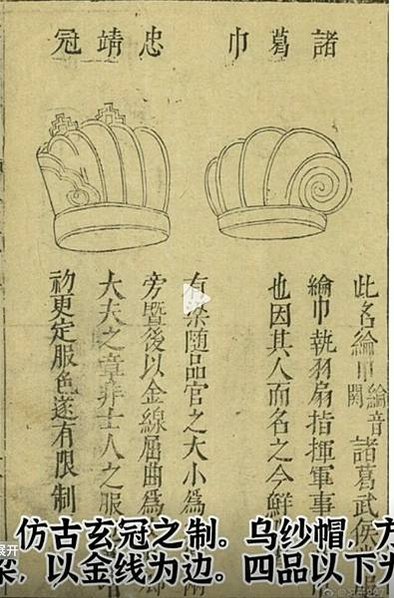 諸葛巾
此名綸巾綸音關諸葛武侯
綸巾執羽扇指揮軍事
也因其人而名之今鮮
忠靖冠
有梁随品官之大小為
旁暨後以金線屈曲為
大夫之章非士人之服
初更定服色遂有限制
展开
仿古玄冠之制。乌纱帽，方
，以金线为边。四品以下